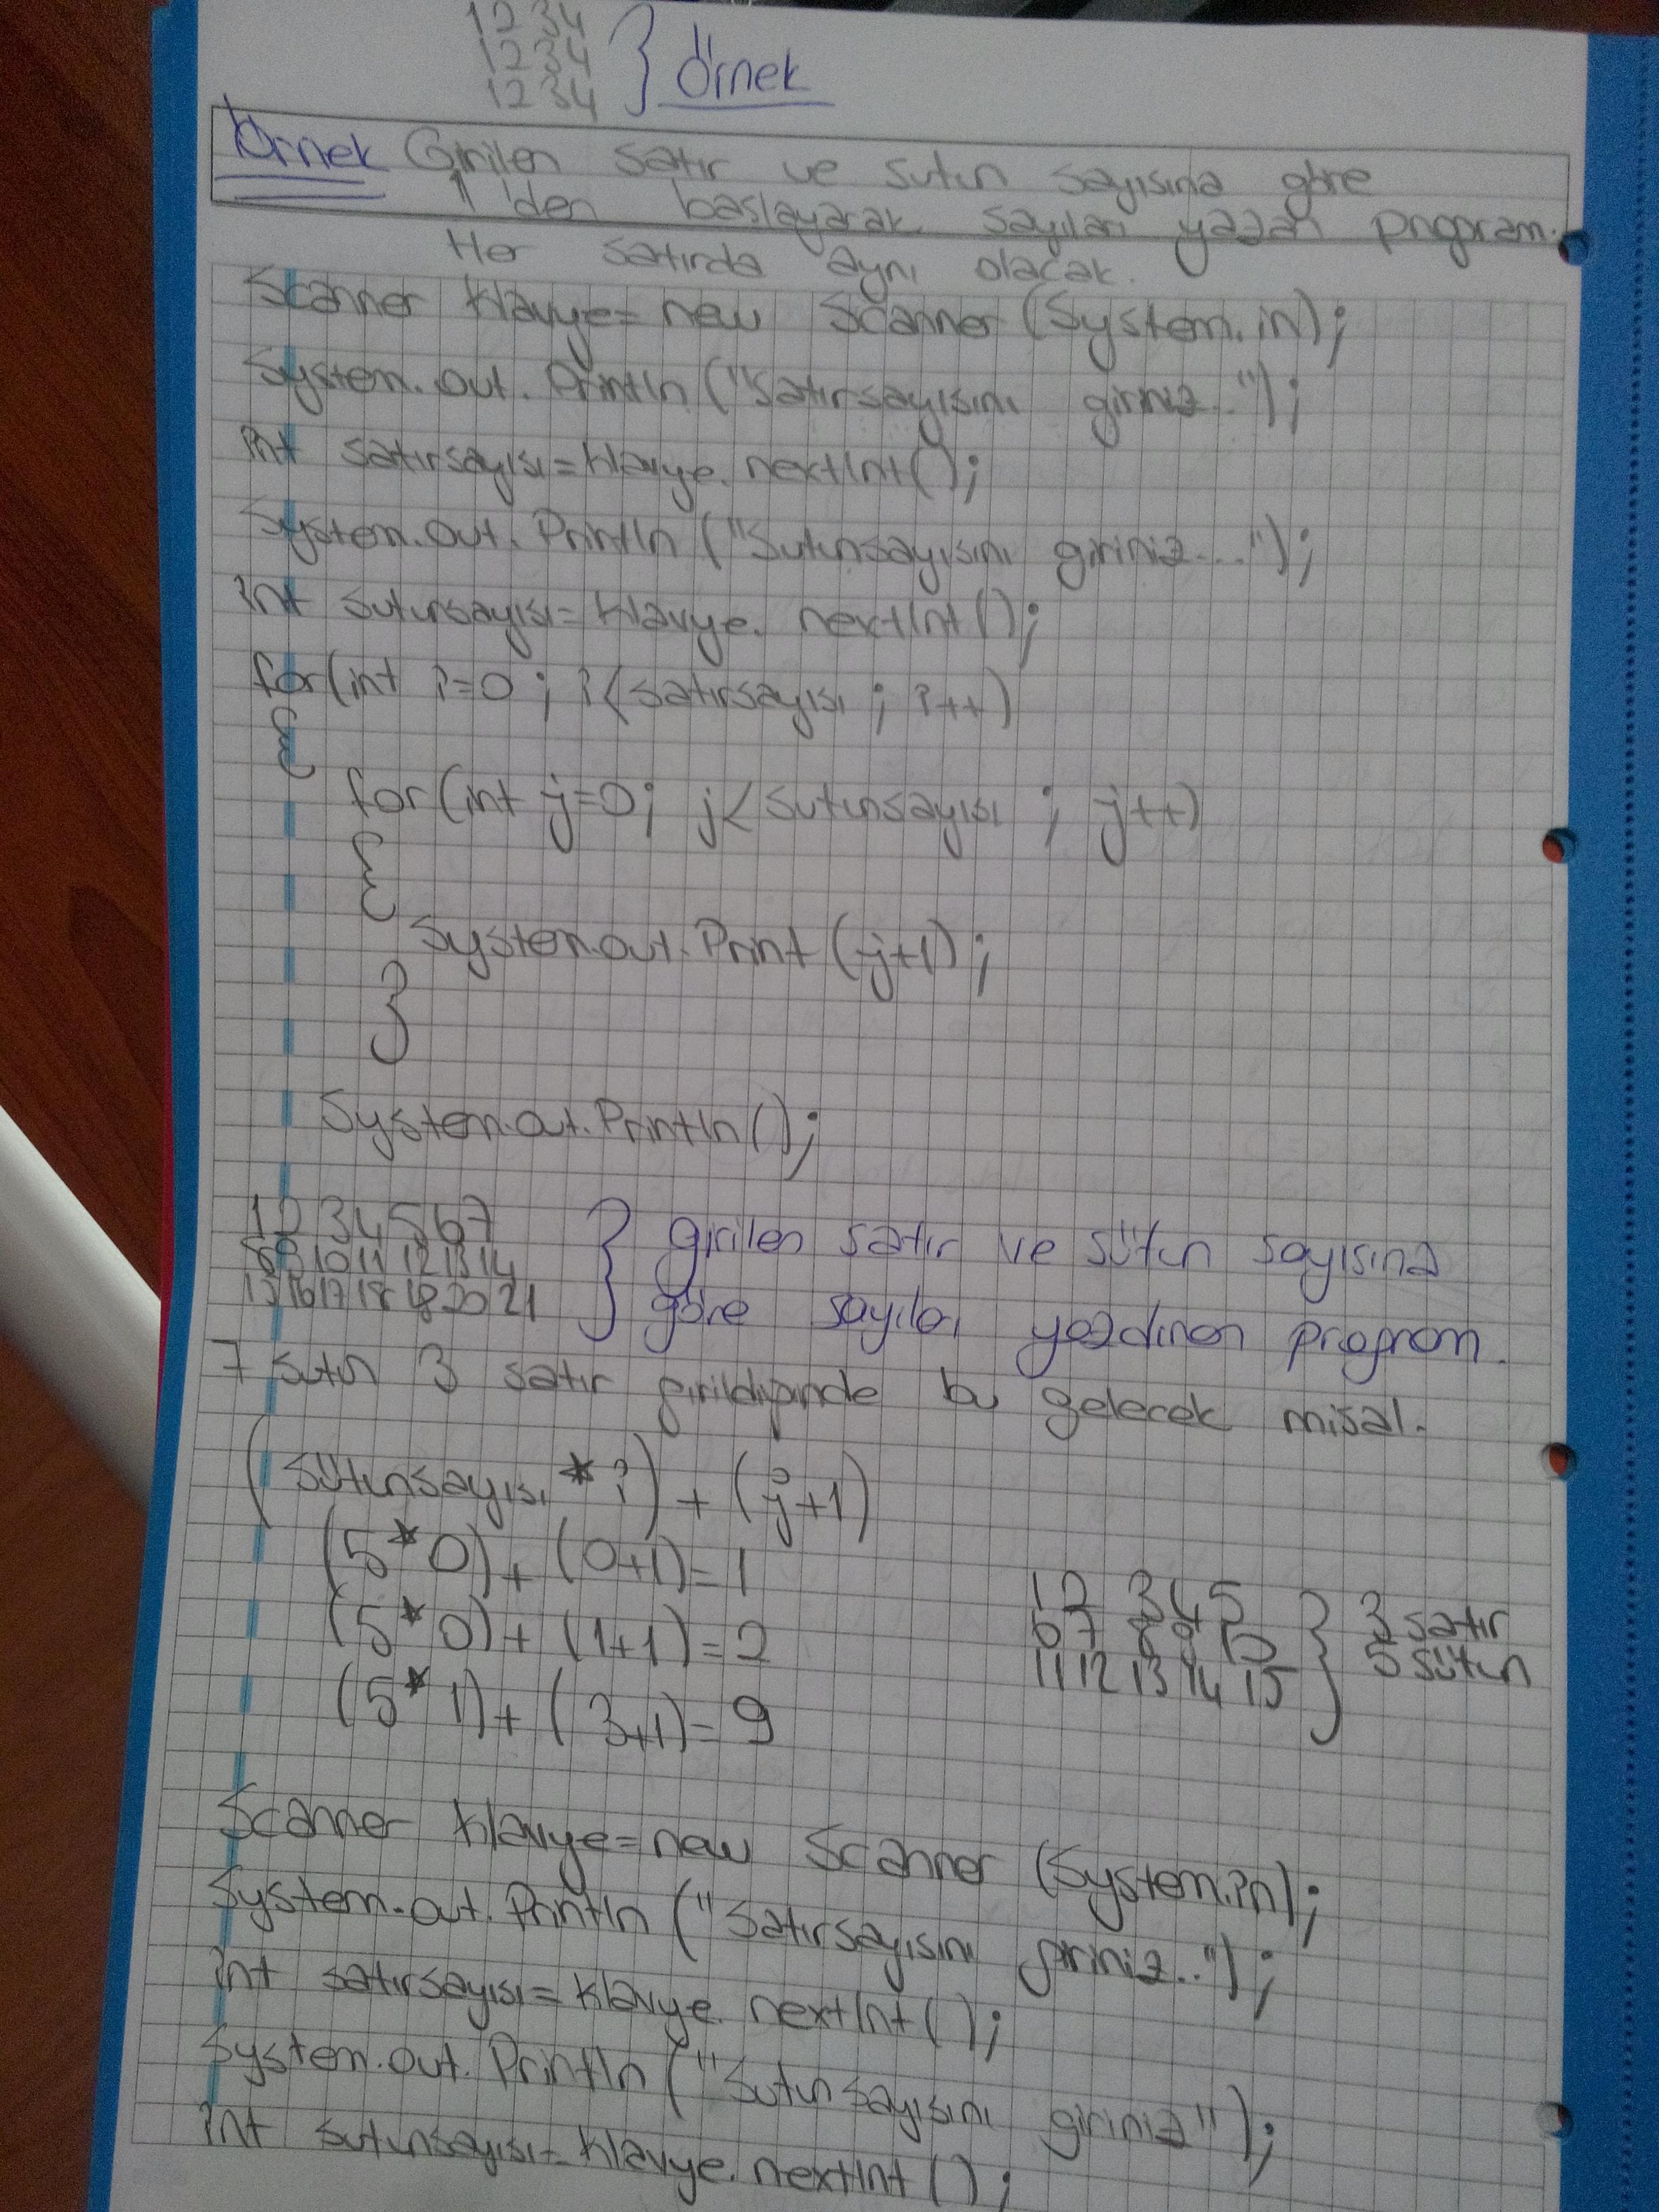 1 2 3 4
1 2 3 4
1 2 3 4 } Örnek
Örnek Girilen satır ve sutun sayısına göre
1'den başlayarak sayıları yazan program.
Her satırda aynı olacak.
Scanner klavye= new Scanner (System.in);
System.out.Println ("Satırsayısını giriniz..");
int satırsayısı=klavye.nextInt();
System.out.Println ("Sutunsayısını giriniz...");
int sutunsayısı=klavye.nextInt();
for(int i=0; i<satırsayısı; i++)
{
for(int j=0; j<sutunsayısı; j++)
{
System.out.Print (j+1);
}
System.out.Println();
1 2 3 4 5 6 7 } girilen satır ve sütun sayısına
8 9 10 11 12 13 14
15 16 17 18 19 20 21 göre sayıları yazdıran program.
7 sutun 3 satır girildiğinde bu gelecek misal.
(Sütunsayısı * i) + (j+1)
(5*0)+(0+1)=1
(5*0)+(1+1)=2
(5*1)+(3+1)=9
1 2 3 4 5
6 7 8 9 10 } 3 satır
11 12 13 14 15 5 sütun
Scanner klavye=new Scanner (System.in);
System.out.Println ("Satırsayısını giriniz..");
int satırsayısı=klavye.nextInt();
System.out.Println ("Sutunsayısını giriniz");
int sutunsayısı=klavye.nextInt();